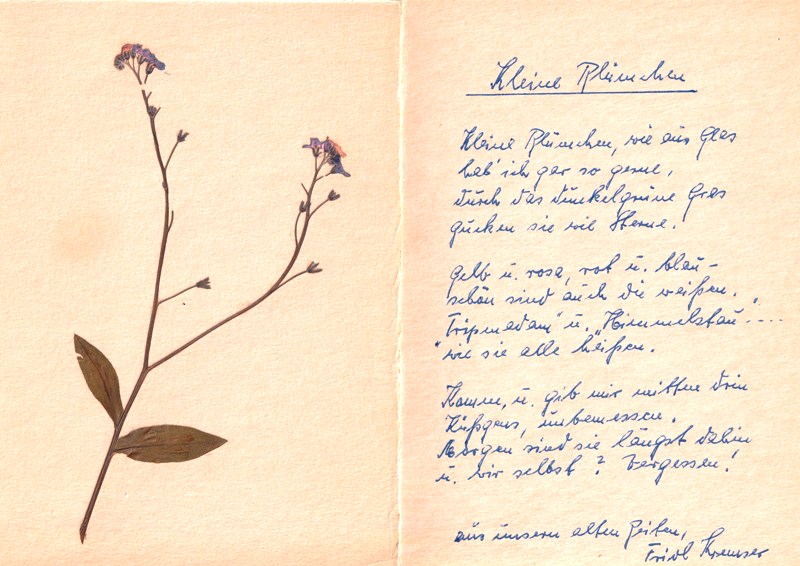 Kleine Blümchen
Kleine Blümchen, wie aus Glas
hab' ich gar so gerne,
durch das dunkelgrüne Gras
gucken sie wie Sterne.
Gelb u. rosa, rot u. blau –
schön sind auch die weißen.
"Tripmadam" u. „Himmelstau" ....
wie sie alle heißen.
Komm, u. gib mir mitten drin
Küßgens, unbemessen.
Morgen sind sie längst dahin
u. wir selbst? Vergessen!
aus unsern alten Zeiten,
Fridl Kremser